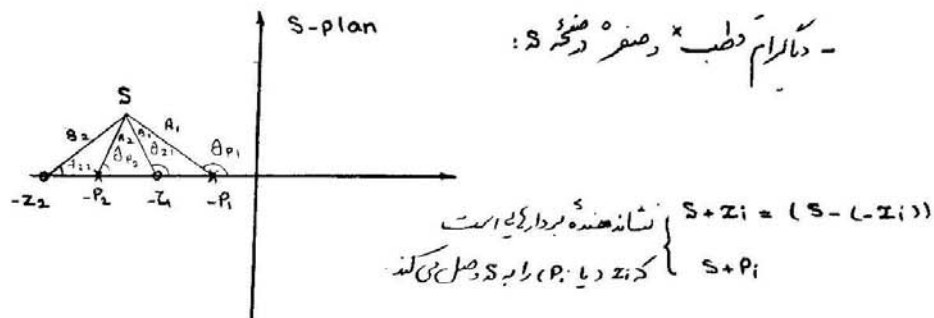 S-plan
- دیاگرام قطب × و صفر ° در صفحهٔ S :
S
B2 A2 B1 A1
θz2 θP2 θz1 θP1
-Z2 -P2 -Z1 -P1
S+Zi = (S-(-Zi))
S+Pi
نشاندهندهٔ بردارهایی است
که Zi (یا Pi) را به S وصل می‌کند.